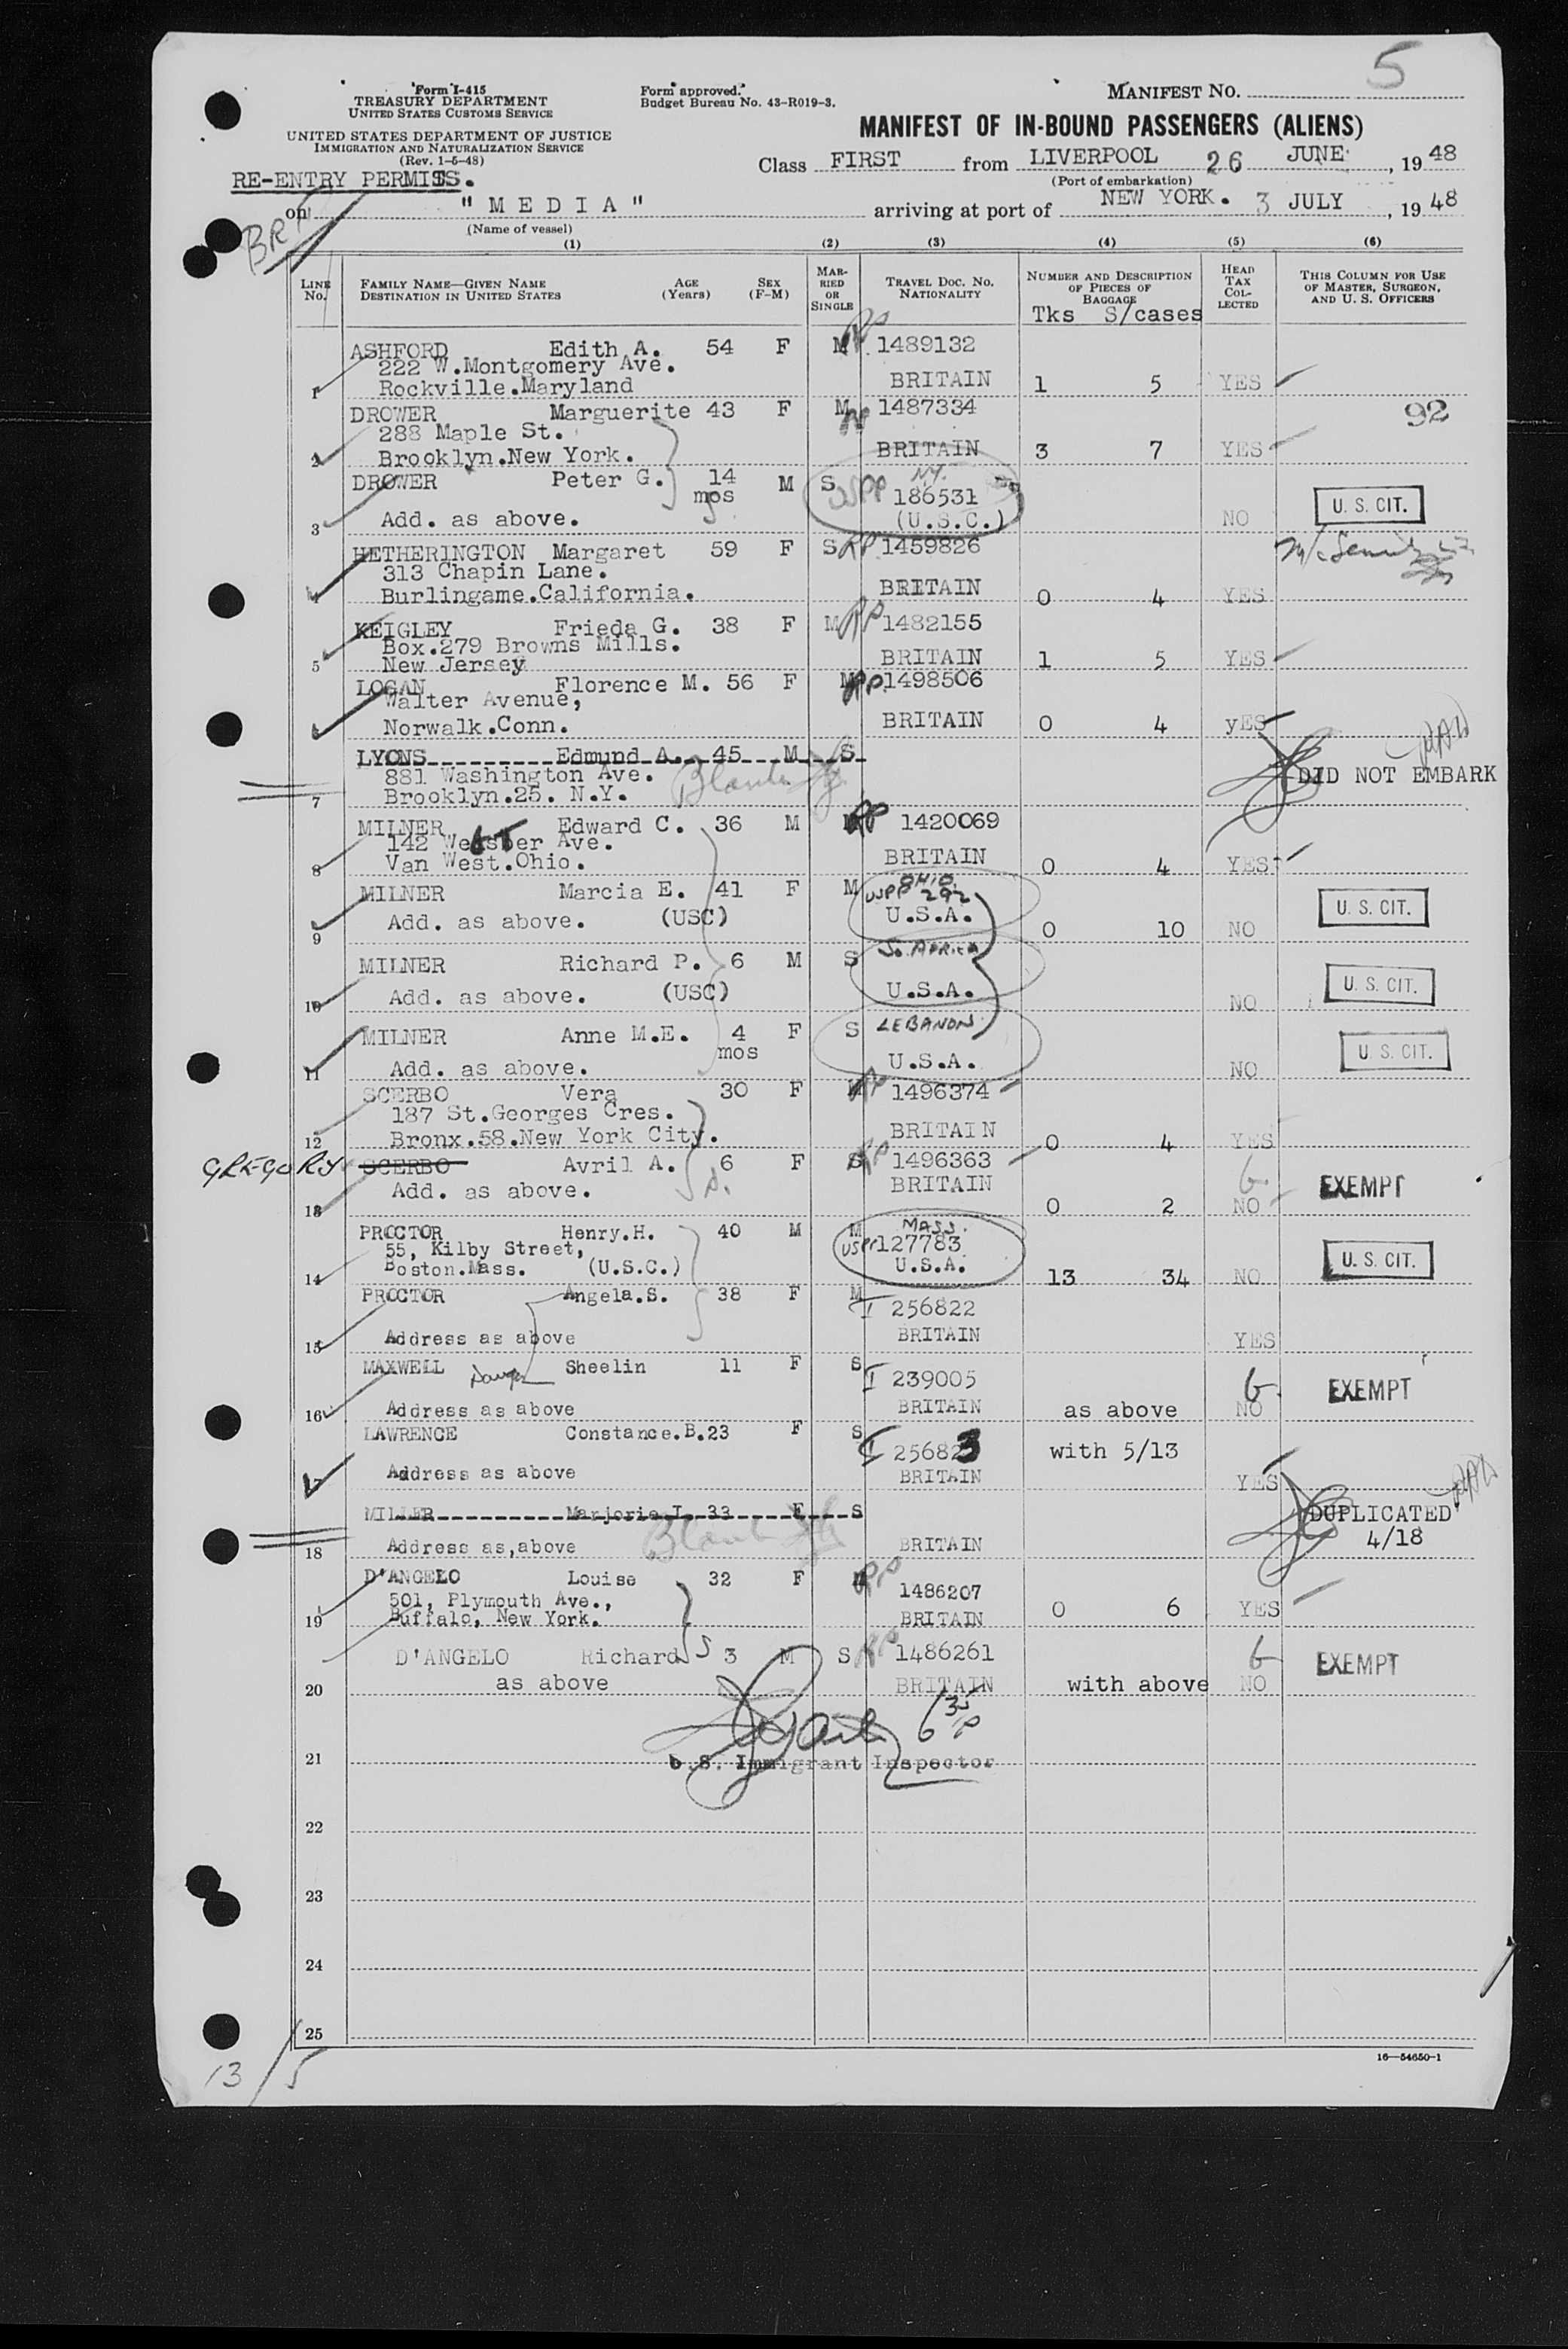 5
Form I-415
TREASURY DEPARTMENT
UNITED STATES CUSTOMS SERVICE
Form approved.
Budget Bureau No. 43-R019-3.
MANIFEST NO.
UNITED STATES DEPARTMENT OF JUSTICE
IMMIGRATION AND NATURALIZATION SERVICE
(Rev. 1-5-48)
MANIFEST OF IN-BOUND PASSENGERS (ALIENS)
RE-ENTRY PERMITS.
Class FIRST from LIVERPOOL 26 JUNE, 1948
(Port of embarkation)
on "MEDIA" arriving at port of NEW YORK. 3 JULY, 1948
(Name of vessel)
(1) (2) (3) (4) (5) (6)
LINE No. FAMILY NAME—GIVEN NAME DESTINATION IN UNITED STATES AGE (Years) SEX (F-M) MARRIED OR SINGLE TRAVEL DOC. NO. NATIONALITY NUMBER AND DESCRIPTION OF PIECES OF BAGGAGE HEAD TAX COLLECTED THIS COLUMN FOR USE OF MASTER, SURGEON, AND U. S. OFFICERS
Tks S/cases
ASHFORD Edith A. 54 F M RP 1489132
222 W.Montgomery Ave.
1 Rockville.Maryland BRITAIN 1 5 YES
DROWER Marguerite 43 F M RP 1487334 92
288 Maple St.
2 Brooklyn.New York. BRITAIN 3 7 YES
DROWER Peter G. 14 mos M S USPP N.Y. 186531 U. S. CIT.
3 Add. as above. (U.S.C.) NO
HETHERINGTON Margaret 59 F S RP 1459826
313 Chapin Lane.
4 Burlingame.California. BRITAIN 0 4 YES
KEIGLEY Frieda G. 38 F M RP 1482155
Box.279 Browns Mills.
5 New Jersey BRITAIN 1 5 YES
LOGAN Florence M. 56 F M RP. 1498506
Walter Avenue,
6 Norwalk.Conn. BRITAIN 0 4 yES
LYONS Edmund A. 45 M S
881 Washington Ave. DID NOT EMBARK
7 Brooklyn.25. N.Y.
MILNER Edward C. 36 M M RP 1420069
142 Webster Ave.
8 Van West.Ohio. BRITAIN 0 4 YES
MILNER Marcia E. 41 F M USPP OHIO. 292 U. S. CIT.
9 Add. as above. (USC) U.S.A. 0 10 NO
MILNER Richard P. 6 M S So. AFRICA U. S. CIT.
10 Add. as above. (USC) U.S.A. NO
MILNER Anne M.E. 4 mos F S LEBANON U. S. CIT.
11 Add. as above. U.S.A. NO
SCERBO Vera 30 F M RP 1496374
187 St.Georges Cres.
12 Bronx.58.New York City. BRITAIN 0 4 YES
GREGORY SCERBO Avril A. 6 F S RP 1496363
13 Add. as above. BRITAIN 0 2 NO EXEMPT
PROCTOR Henry.H. 40 M M MASS. USPP 127783
55, Kilby Street,
14 Boston.Mass. (U.S.C.) U.S.A. 13 34 NO U. S. CIT.
PROCTOR Angela.S. 38 F M I 256822
15 Address as above BRITAIN YES
MAXWELL Sheelin 11 F S I 239005 EXEMPT
16 Address as above BRITAIN as above NO
LAWRENCE Constance.B. 23 F S I 256823 with 5/13
17 Address as above BRITAIN YES
MILLER Marjorie I. 33 F S DUPLICATED
18 Address as,above BRITAIN 4/18
D'ANGELO Louise 32 F M RP 1486207
501, Plymouth Ave.,
19 Buffalo, New York. BRITAIN 0 6 YES
D'ANGELO Richard 3 M S RP 1486261 EXEMPT
20 as above BRITAIN with above NO
21 U.S. Immigrant Inspector
22
23
24
25
16—54650-1
13/5